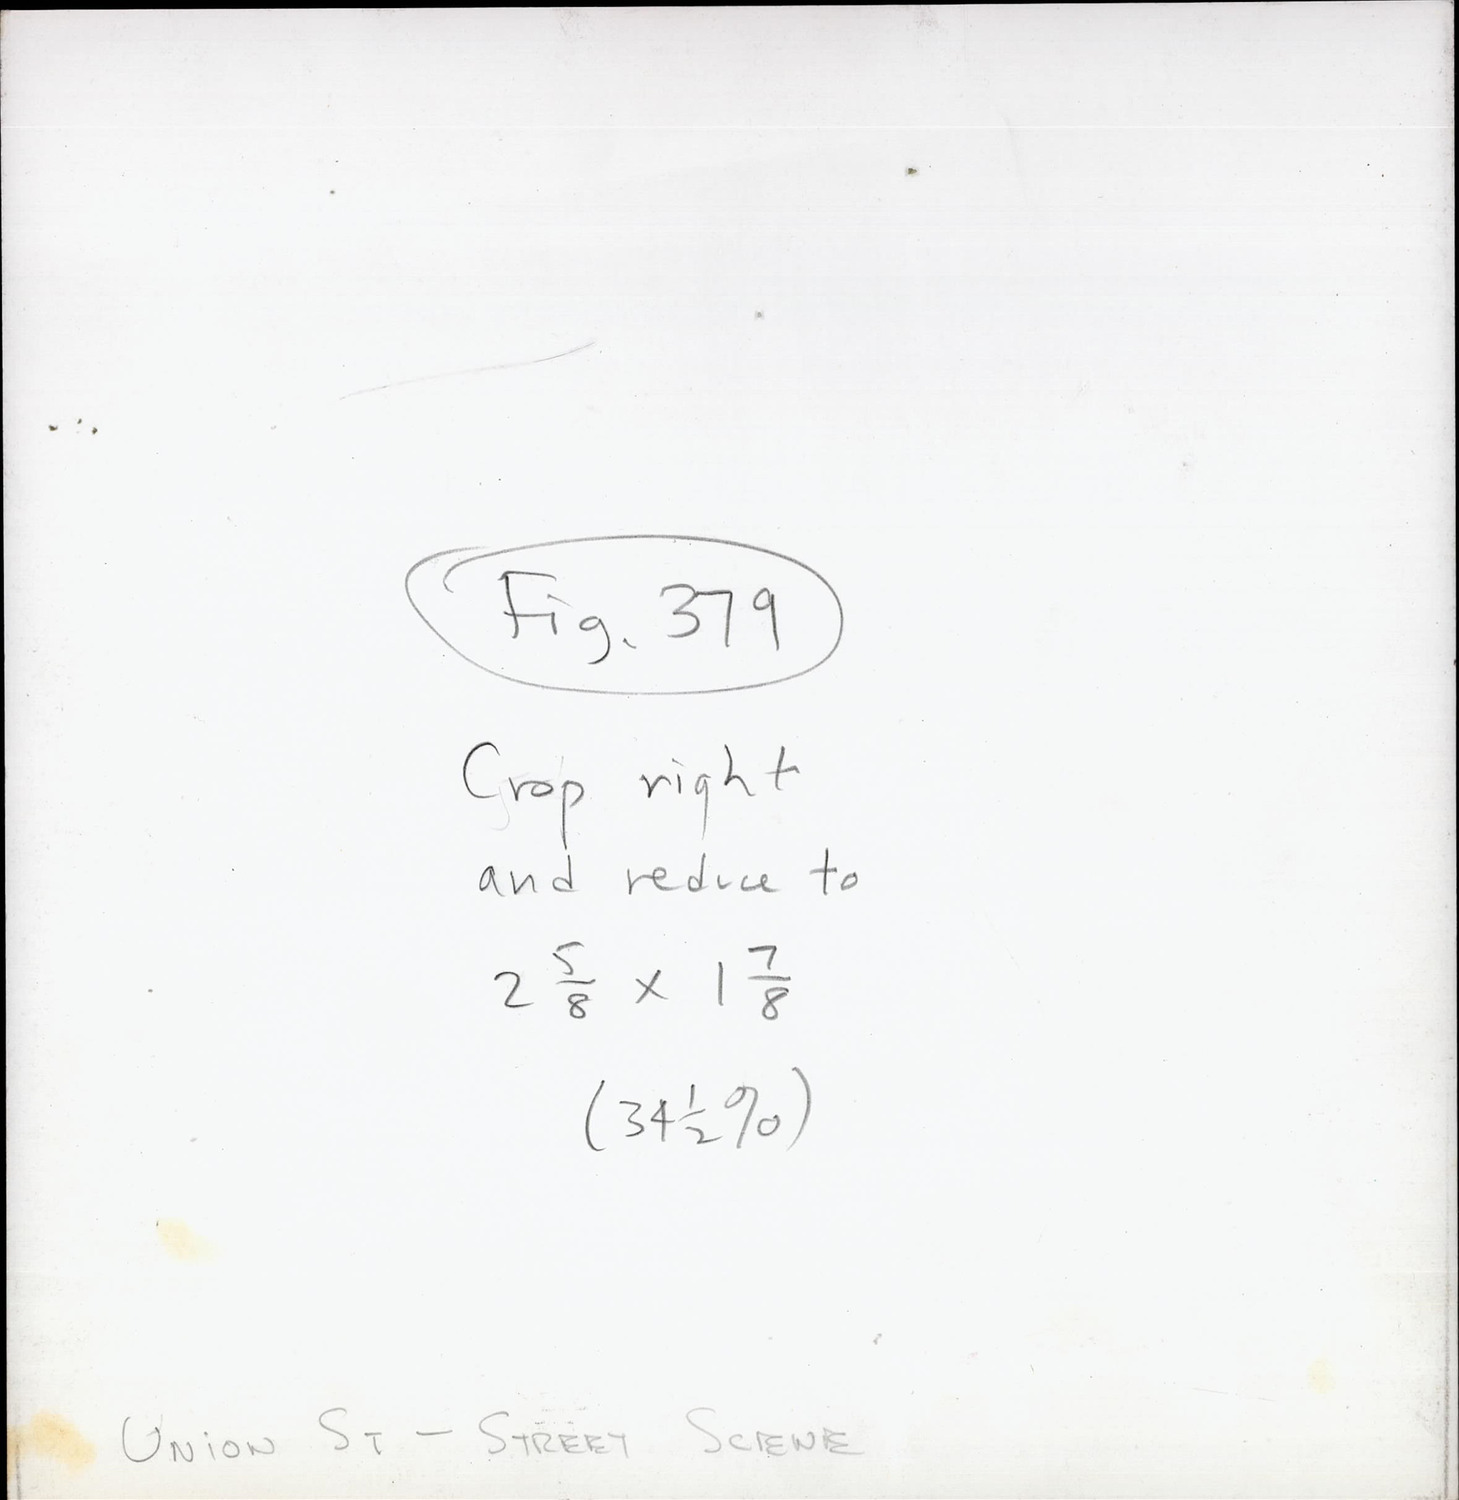 Fig. 379
Crop right
and reduce to
2 5/8 x 1 7/8
(34 1/2 %)
UNION ST – STREET SCENE